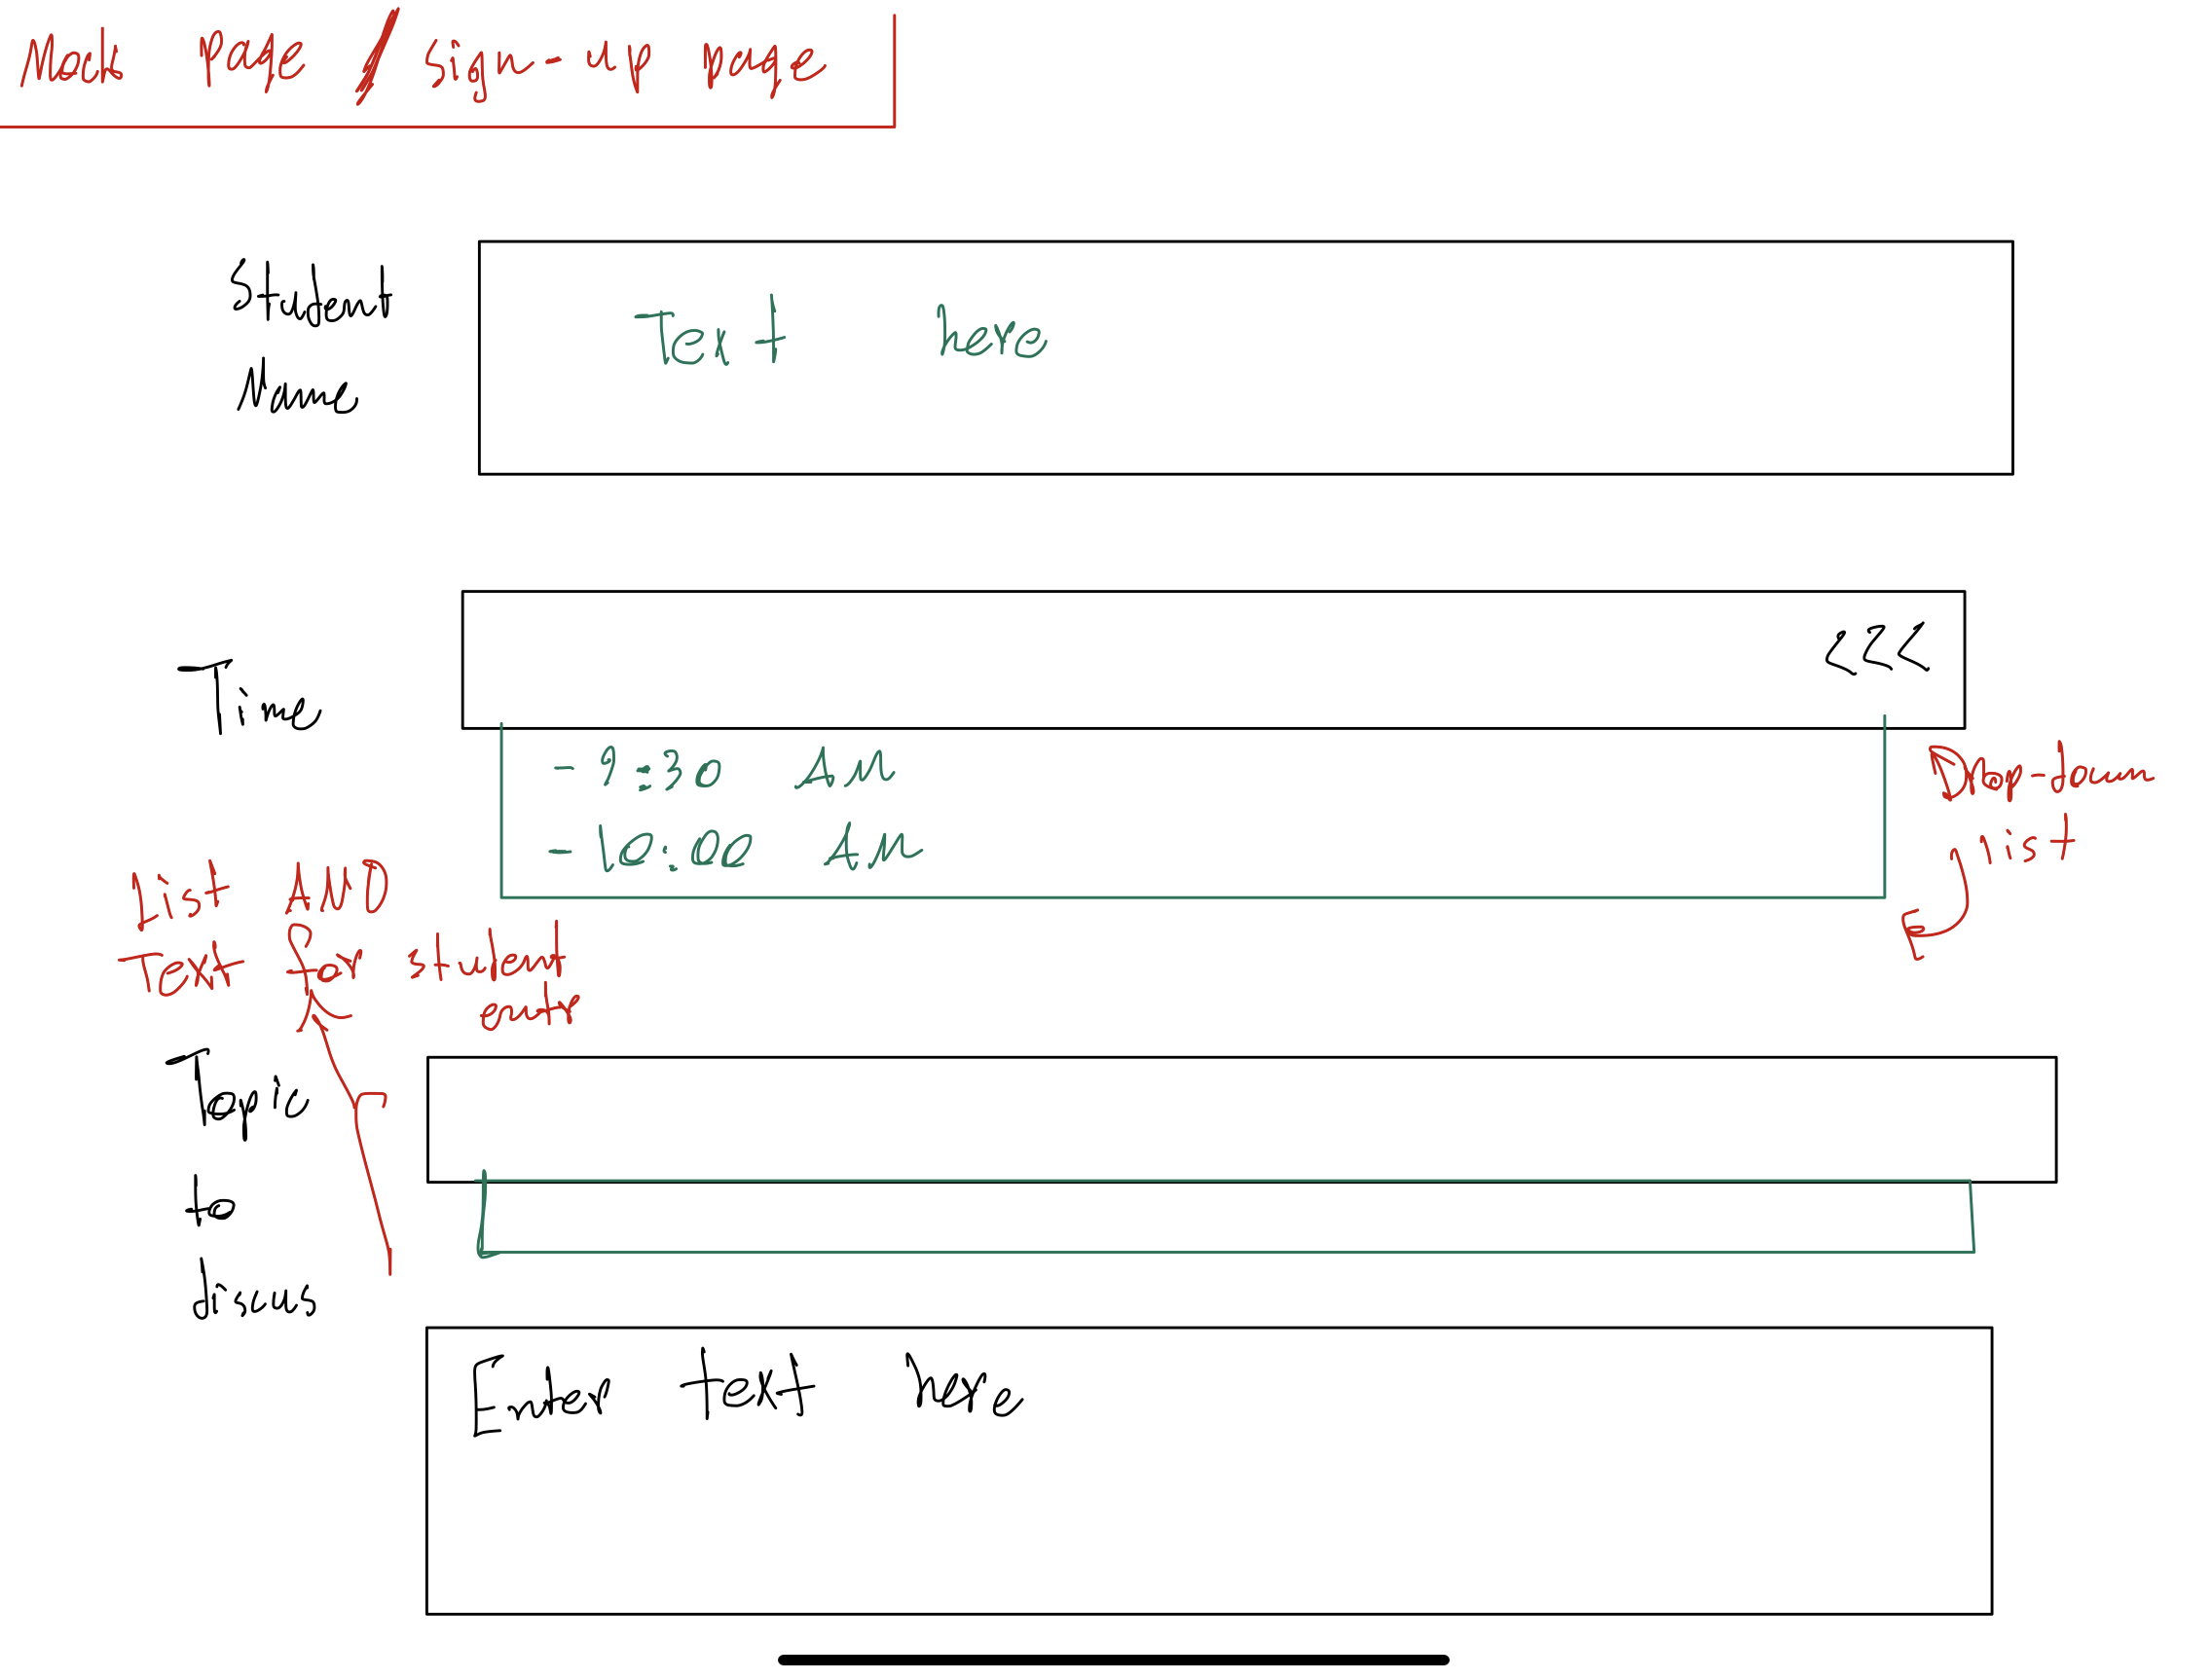 Mock Page / sign-up page
Student
Name
Text here
Time
<<<
- 9:30 AM
- 10:00 AM
Drop-down
list
List AND
Text for student
entr
Topic
to
discus
Enter text here